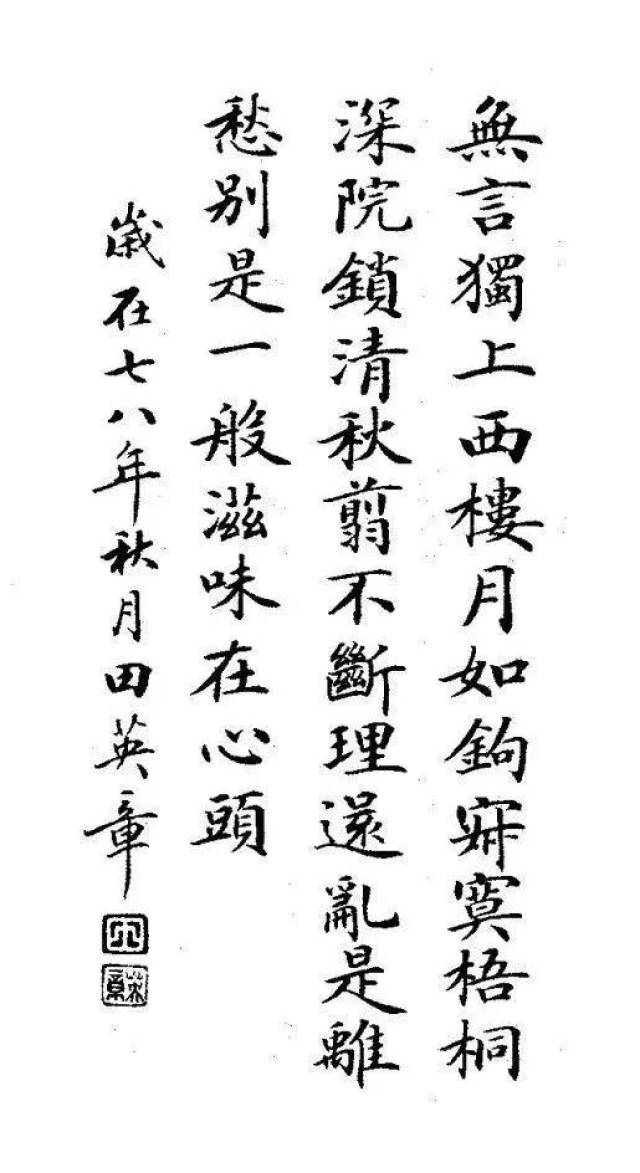 無言獨上西樓月如鉤寂寞梧桐
深院鎖清秋翦不斷理還亂是離
愁別是一般滋味在心頭
歲在七八年秋月田英章